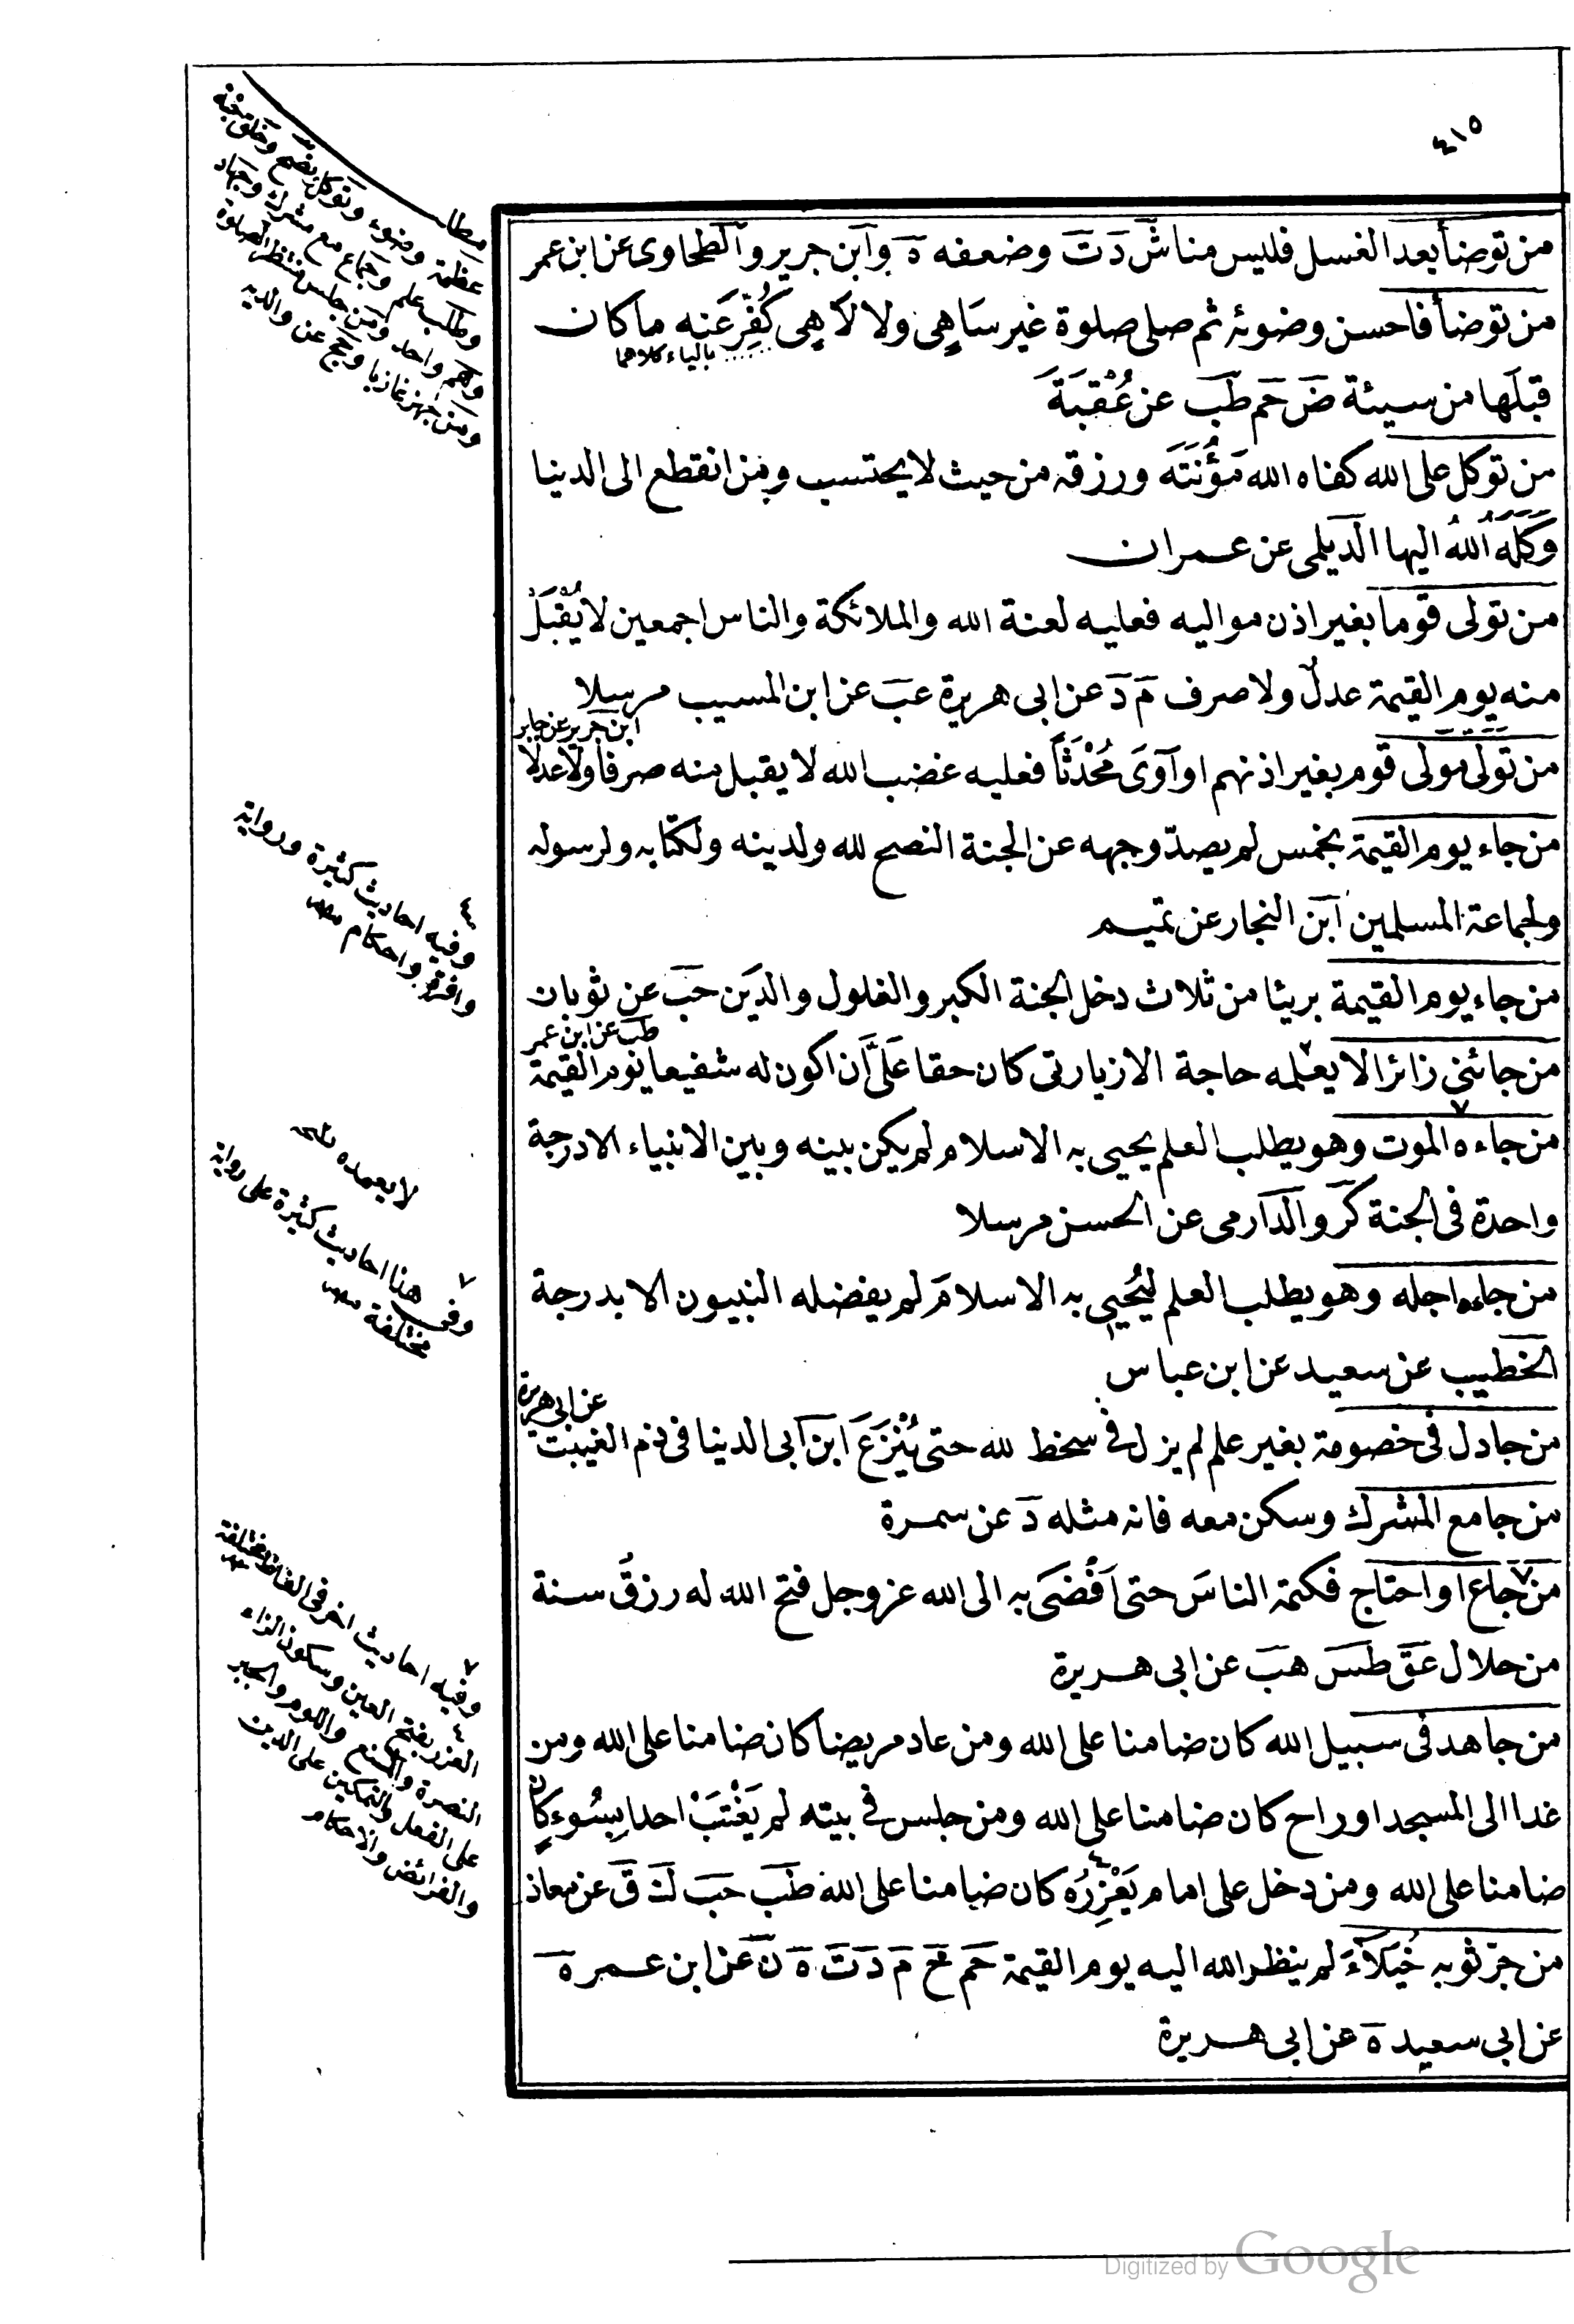 ٤١٥
من توضأ بعد الغسل فليس منا ش د ت وضعفه ه وابن جرير والطحاوى عن ابن عمر
من توضأ فاحسن وضوئه ثم صلى صلوة غير سَاهِى ولا لاَهِى كُفِّرَ عَنه ما كان
بالياء كلاهما
قبلَها من سيئة ض حم طب عن عُقْبَةَ
من توكل على الله كفاه الله مَؤُنَتَهَ ورزقه من حيث لا يحتسب ومن انقطع الى الدنيا
وَكَلَهُ اللهُ اليها الديلمى عن عمران
من تولى قوما بغير اذن مواليه فعليه لعنة الله والملائكة والناس اجمعين لا يُقْبَلْ
منه يوم القيمة عدلٌ ولا صرف م د عن ابى هريرة عب عن ابن المسيب مرسلا
ابن جرير عن جابر
من تَوَلّى مَولى قوم بغير اذنهم او آوَىَ مُحْدَثًا فعليه غضب الله لا يقبل منه صرفا ولا عدلا
من جاء يوم القيمة بخمس لم يصدّ وجهه عن الجنة النصح لله ولدينه ولكتابه ولرسوله
ولجماعة المسلمين ابن النجار عن تميم
من جاء يوم القيمة بريئا من ثلاث دخل الجنة الكبر والغلول والدَين حب عن ثوبان
طب عن ابن عمر
من جائنى زائرا لا يعلمه حاجة الا زيارتى كان حقا عَلَىَّ ان اكون له شفيعا يوم القيمة
من جاءه الموت وهو يطلب العلم يحيى به الاسلام لم يكن بينه وبين الانبياء الا درجة
واحدة فى الجنة كر والدارمى عن الحسن مرسلا
من جاءه اجله وهو يطلب العلم ليُحيى به الاسلامَ لم يفضله النبيون الا بدرجة
الخطيب عن سعيد عن ابن عباس
عن ابى هريرة
من جادل فى خصومة بغير علم لم يزل فى سخط لله حتى يَنْزَعَ ابن ابى الدنيا فى ذم الغيبت
من جامع المشرك وسكن معه فانه مثله د عن سمرة
من جاع او احتاج فكتمه الناسَ حتى اَفْضَىَ به الى الله عز وجل فتح الله له رزقُ سنة
من حلال عق طس هب عن ابى هريرة
من جاهد فى سبيل الله كان ضامنا على الله ومن عاد مريضا كان ضامنا على الله ومن
غدا الى المسجد او راح كان ضامنا على الله ومن جلس فى بيته لم يَغْتَبْ احدا بِسُوءٍ كان
ضامنا على الله ومن دخل على امام يَعْزِرُه كان ضامنا على الله طب حب ك ق عن معاذ
من جرّ ثوبه خُيَلاَءَ لم ينظر الله اليه يوم القيمة حم خ م د ت ه ن عن ابن عمر ه
عن ابى سعيد ه عن ابى هريرة
مطلب
عظمة وضوء وتوكل
وطلب علم وجماع مع مشرك وجهاد
وهم واحد ومن جلس منتظر الصلوة
ومن جهز غازيا وحج عن والديه
٤
وفيه احاديث كثيرة ورواية
وافرة واحكام
لا يعمده
٧
وفى هنا احاديث كثيرة على رواية
مختلفة
٧
وفيه احاديث اخر فى الفاظ مختلفة
٤
العزر بفتح العين وسكون الزاء
النصرة والمنع واللوم والجبر
على الفعل والتمكين على الدين
والفرائض والاحكام
Digitized by Google